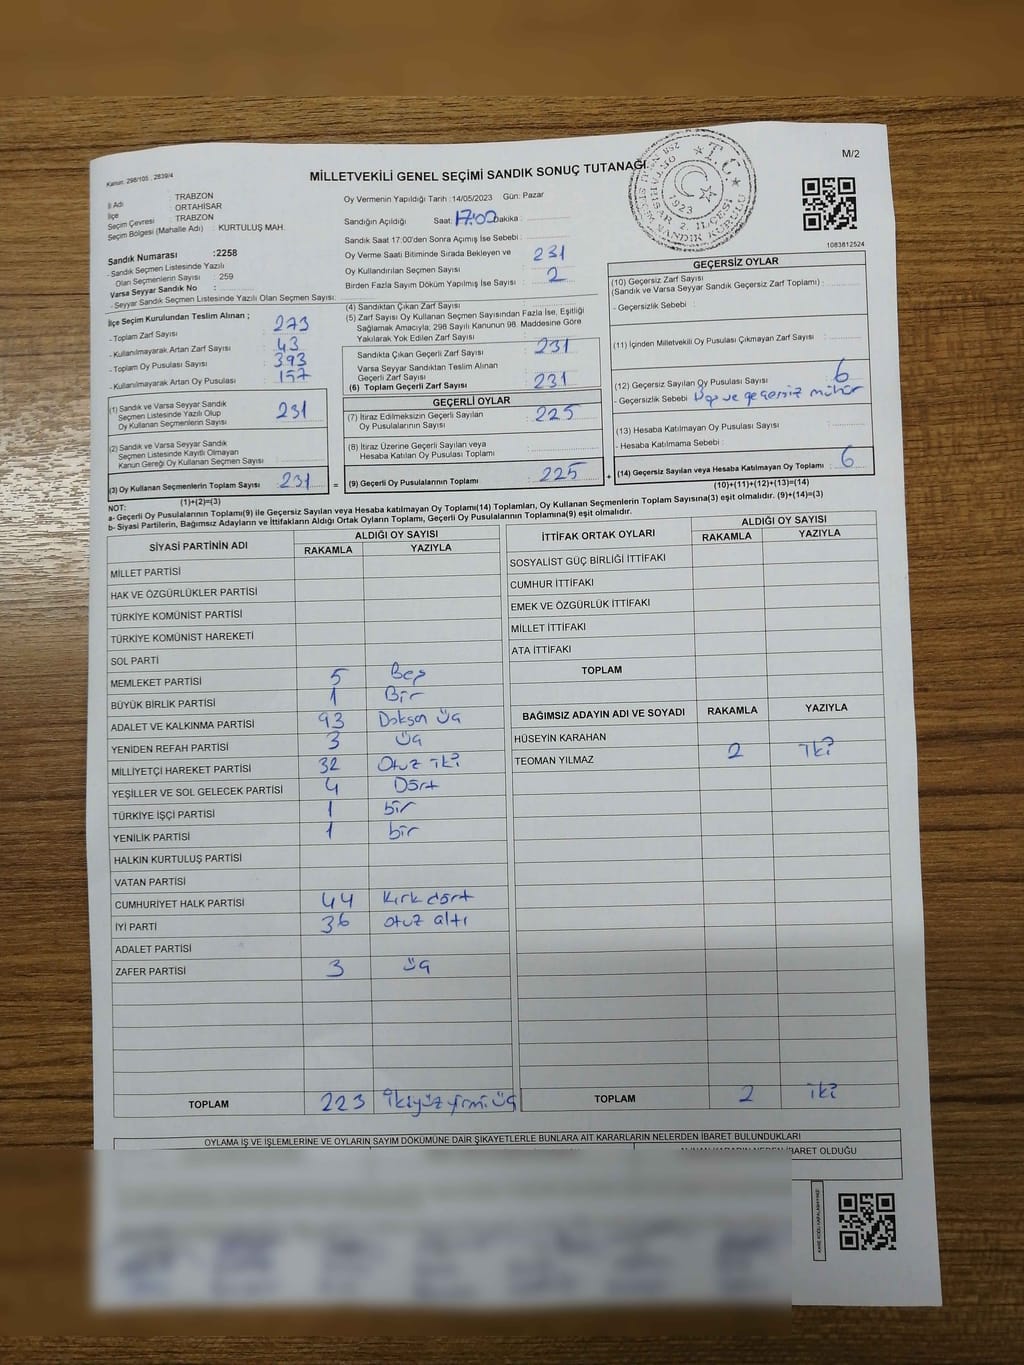 Kanun: 298/105 , 2839/4
MİLLETVEKİLİ GENEL SEÇİMİ SANDIK SONUÇ TUTANAĞI
M/2
İl Adı : TRABZON
İlçe : ORTAHİSAR
Seçim Çevresi : TRABZON
Seçim Bölgesi (Mahalle Adı) : KURTULUŞ MAH.
Sandık Numarası :2258
- Sandık Seçmen Listesinde Yazılı
Olan Seçmenlerin Sayısı : 259
Varsa Seyyar Sandık No :
- Seyyar Sandık Seçmen Listesinde Yazılı Olan Seçmen Sayısı:
Oy Vermenin Yapıldığı Tarih :14/05/2023 Gün: Pazar
Sandığın Açıldığı Saat: 17:00 Dakika :
Sandık Saat 17:00'den Sonra Açımış İse Sebebi :
Oy Verme Saati Bitiminde Sırada Bekleyen ve
Oy Kullandırılan Seçmen Sayısı : 231
Birden Fazla Sayım Döküm Yapılmış İse Sayısı : 2
T.C.
ORTAHİSAR 2. İLÇESİ
1923
1083812524
İlçe Seçim Kurulundan Teslim Alınan ;
- Toplam Zarf Sayısı : 273
- Kullanılmayarak Artan Zarf Sayısı : 43
- Toplam Oy Pusulası Sayısı : 393
- Kullanılmayarak Artan Oy Pusulası : 157
(1) Sandık ve Varsa Seyyar Sandık
Seçmen Listesinde Yazılı Olup
Oy Kullanan Seçmenlerin Sayısı : 231
(2) Sandık ve Varsa Seyyar Sandık
Seçmen Listesinde Kayıtlı Olmayan
Kanun Gereği Oy Kullanan Seçmen Sayısı :
(3) Oy Kullanan Seçmenlerin Toplam Sayısı : 231
(1)+(2)=(3)
(4) Sandıktan Çıkan Zarf Sayısı :
(5) Zarf Sayısı Oy Kullanan Seçmen Sayısından Fazla İse, Eşitliği
Sağlamak Amacıyla; 298 Sayılı Kanunun 98. Maddesine Göre
Yakılarak Yok Edilen Zarf Sayısı :
Sandıkta Çıkan Geçerli Zarf Sayısı : 231
Varsa Seyyar Sandıktan Teslim Alınan
Geçerli Zarf Sayısı :
(6) Toplam Geçerli Zarf Sayısı : 231
GEÇERLİ OYLAR
(7) İtiraz Edilmeksizin Geçerli Sayılan
Oy Pusulalarının Sayısı : 225
(8) İtiraz Üzerine Geçerli Sayılan veya
Hesaba Katılan Oy Pusulası Toplamı :
= (9) Geçerli Oy Pusulalarının Toplamı : 225 +
GEÇERSİZ OYLAR
(10) Geçersiz Zarf Sayısı
(Sandık ve Varsa Seyyar Sandık Geçersiz Zarf Toplamı) :
- Geçersizlik Sebebi :
(11) İçinden Milletvekili Oy Pusulası Çıkmayan Zarf Sayısı :
(12) Geçersiz Sayılan Oy Pusulası Sayısı : 6
- Geçersizlik Sebebi : ve geçersiz mühür
(13) Hesaba Katılmayan Oy Pusulası Sayısı :
- Hesaba Katılmama Sebebi :
(14) Geçersiz Sayılan veya Hesaba Katılmayan Oy Toplamı : 6
(10)+(11)+(12)+(13)=(14)
NOT:
a- Geçerli Oy Pusulalarının Toplamı(9) ile Geçersiz Sayılan veya Hesaba katılmayan Oy Toplamı(14) Toplamları, Oy Kullanan Seçmenlerin Toplam Sayısına(3) eşit olmalıdır. (9)+(14)=(3)
b- Siyasi Partilerin, Bağımsız Adayların ve İttifakların Aldığı Ortak Oyların Toplamı, Geçerli Oy Pusulalarının Toplamına(9) eşit olmalıdır.
SİYASİ PARTİNİN ADI ALDIĞI OY SAYISI
RAKAMLA YAZIYLA
MİLLET PARTİSİ
HAK VE ÖZGÜRLÜKLER PARTİSİ
TÜRKİYE KOMÜNİST PARTİSİ
TÜRKİYE KOMÜNİST HAREKETİ
SOL PARTİ
MEMLEKET PARTİSİ 5 Beş
BÜYÜK BİRLİK PARTİSİ 1 Bir
ADALET VE KALKINMA PARTİSİ 93 Doksan üç
YENİDEN REFAH PARTİSİ 3 üç
MİLLİYETÇİ HAREKET PARTİSİ 32 Otuz iki
YEŞİLLER VE SOL GELECEK PARTİSİ 4 Dört
TÜRKİYE İŞÇİ PARTİSİ 1 bir
YENİLİK PARTİSİ 1 bir
HALKIN KURTULUŞ PARTİSİ
VATAN PARTİSİ
CUMHURİYET HALK PARTİSİ 44 Kırk dört
İYİ PARTİ 36 otuz altı
ADALET PARTİSİ
ZAFER PARTİSİ 3 üç
TOPLAM 223 İkiyüz yirmi üç
İTTİFAK ORTAK OYLARI ALDIĞI OY SAYISI
RAKAMLA YAZIYLA
SOSYALİST GÜÇ BİRLİĞİ İTTİFAKI
CUMHUR İTTİFAKI
EMEK VE ÖZGÜRLÜK İTTİFAKI
MİLLET İTTİFAKI
ATA İTTİFAKI
TOPLAM
BAĞIMSIZ ADAYIN ADI VE SOYADI RAKAMLA YAZIYLA
HÜSEYİN KARAHAN
TEOMAN YILMAZ 2 iki
TOPLAM 2 iki
OYLAMA İŞ VE İŞLEMLERİNE VE OYLARIN SAYIM DÖKÜMÜNE DAİR ŞİKAYETLERLE BUNLARA AİT KARARLARIN NELERDEN İBARET BULUNDUKLARI
ALINAN KARARIN NEDEN İBARET OLDUĞU